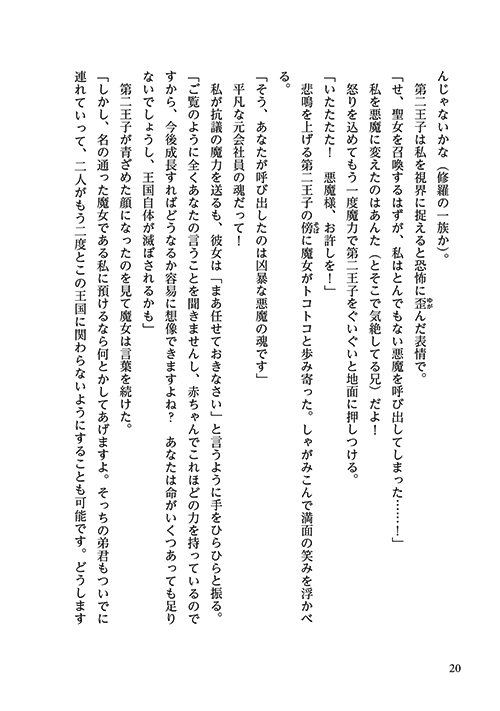 んじゃないかな（修羅の一族か）。
第二王子は私を視界に捉えると恐怖に歪んだ表情で。
「せ、聖女を召喚するはずが、私はとんでもない悪魔を呼び出してしまった……！」
私を悪魔に変えたのはあんた（とそこで気絶してる兄）だよ！
怒りを込めてもう一度魔力で第二王子をぐいぐいと地面に押しつける。
「いたたたた！　悪魔様、お許しを！」
悲鳴を上げる第二王子の傍に魔女がトコトコと歩み寄った。しゃがみこんで満面の笑みを浮かべ
る。
「そう、あなたが呼び出したのは凶暴な悪魔の魂です」
平凡な元会社員の魂だって！
私が抗議の魔力を送るも、彼女は「まあ任せておきなさい」と言うように手をひらひらと振る。
「ご覧のように全くあなたの言うことを聞きませんし、赤ちゃんでこれほどの力を持っているので
すから、今後成長すればどうなるか容易に想像できますよね？　あなたは命がいくつあっても足り
ないでしょうし、王国自体が滅ぼされるかも」
第二王子が青ざめた顔になったのを見て魔女は言葉を続けた。
「しかし、名の通った魔女である私に預けるなら何とかしてあげますよ。そっちの弟君もついでに
連れていって、二人がもう二度とこの王国に関わらないようにすることも可能です。どうします
20